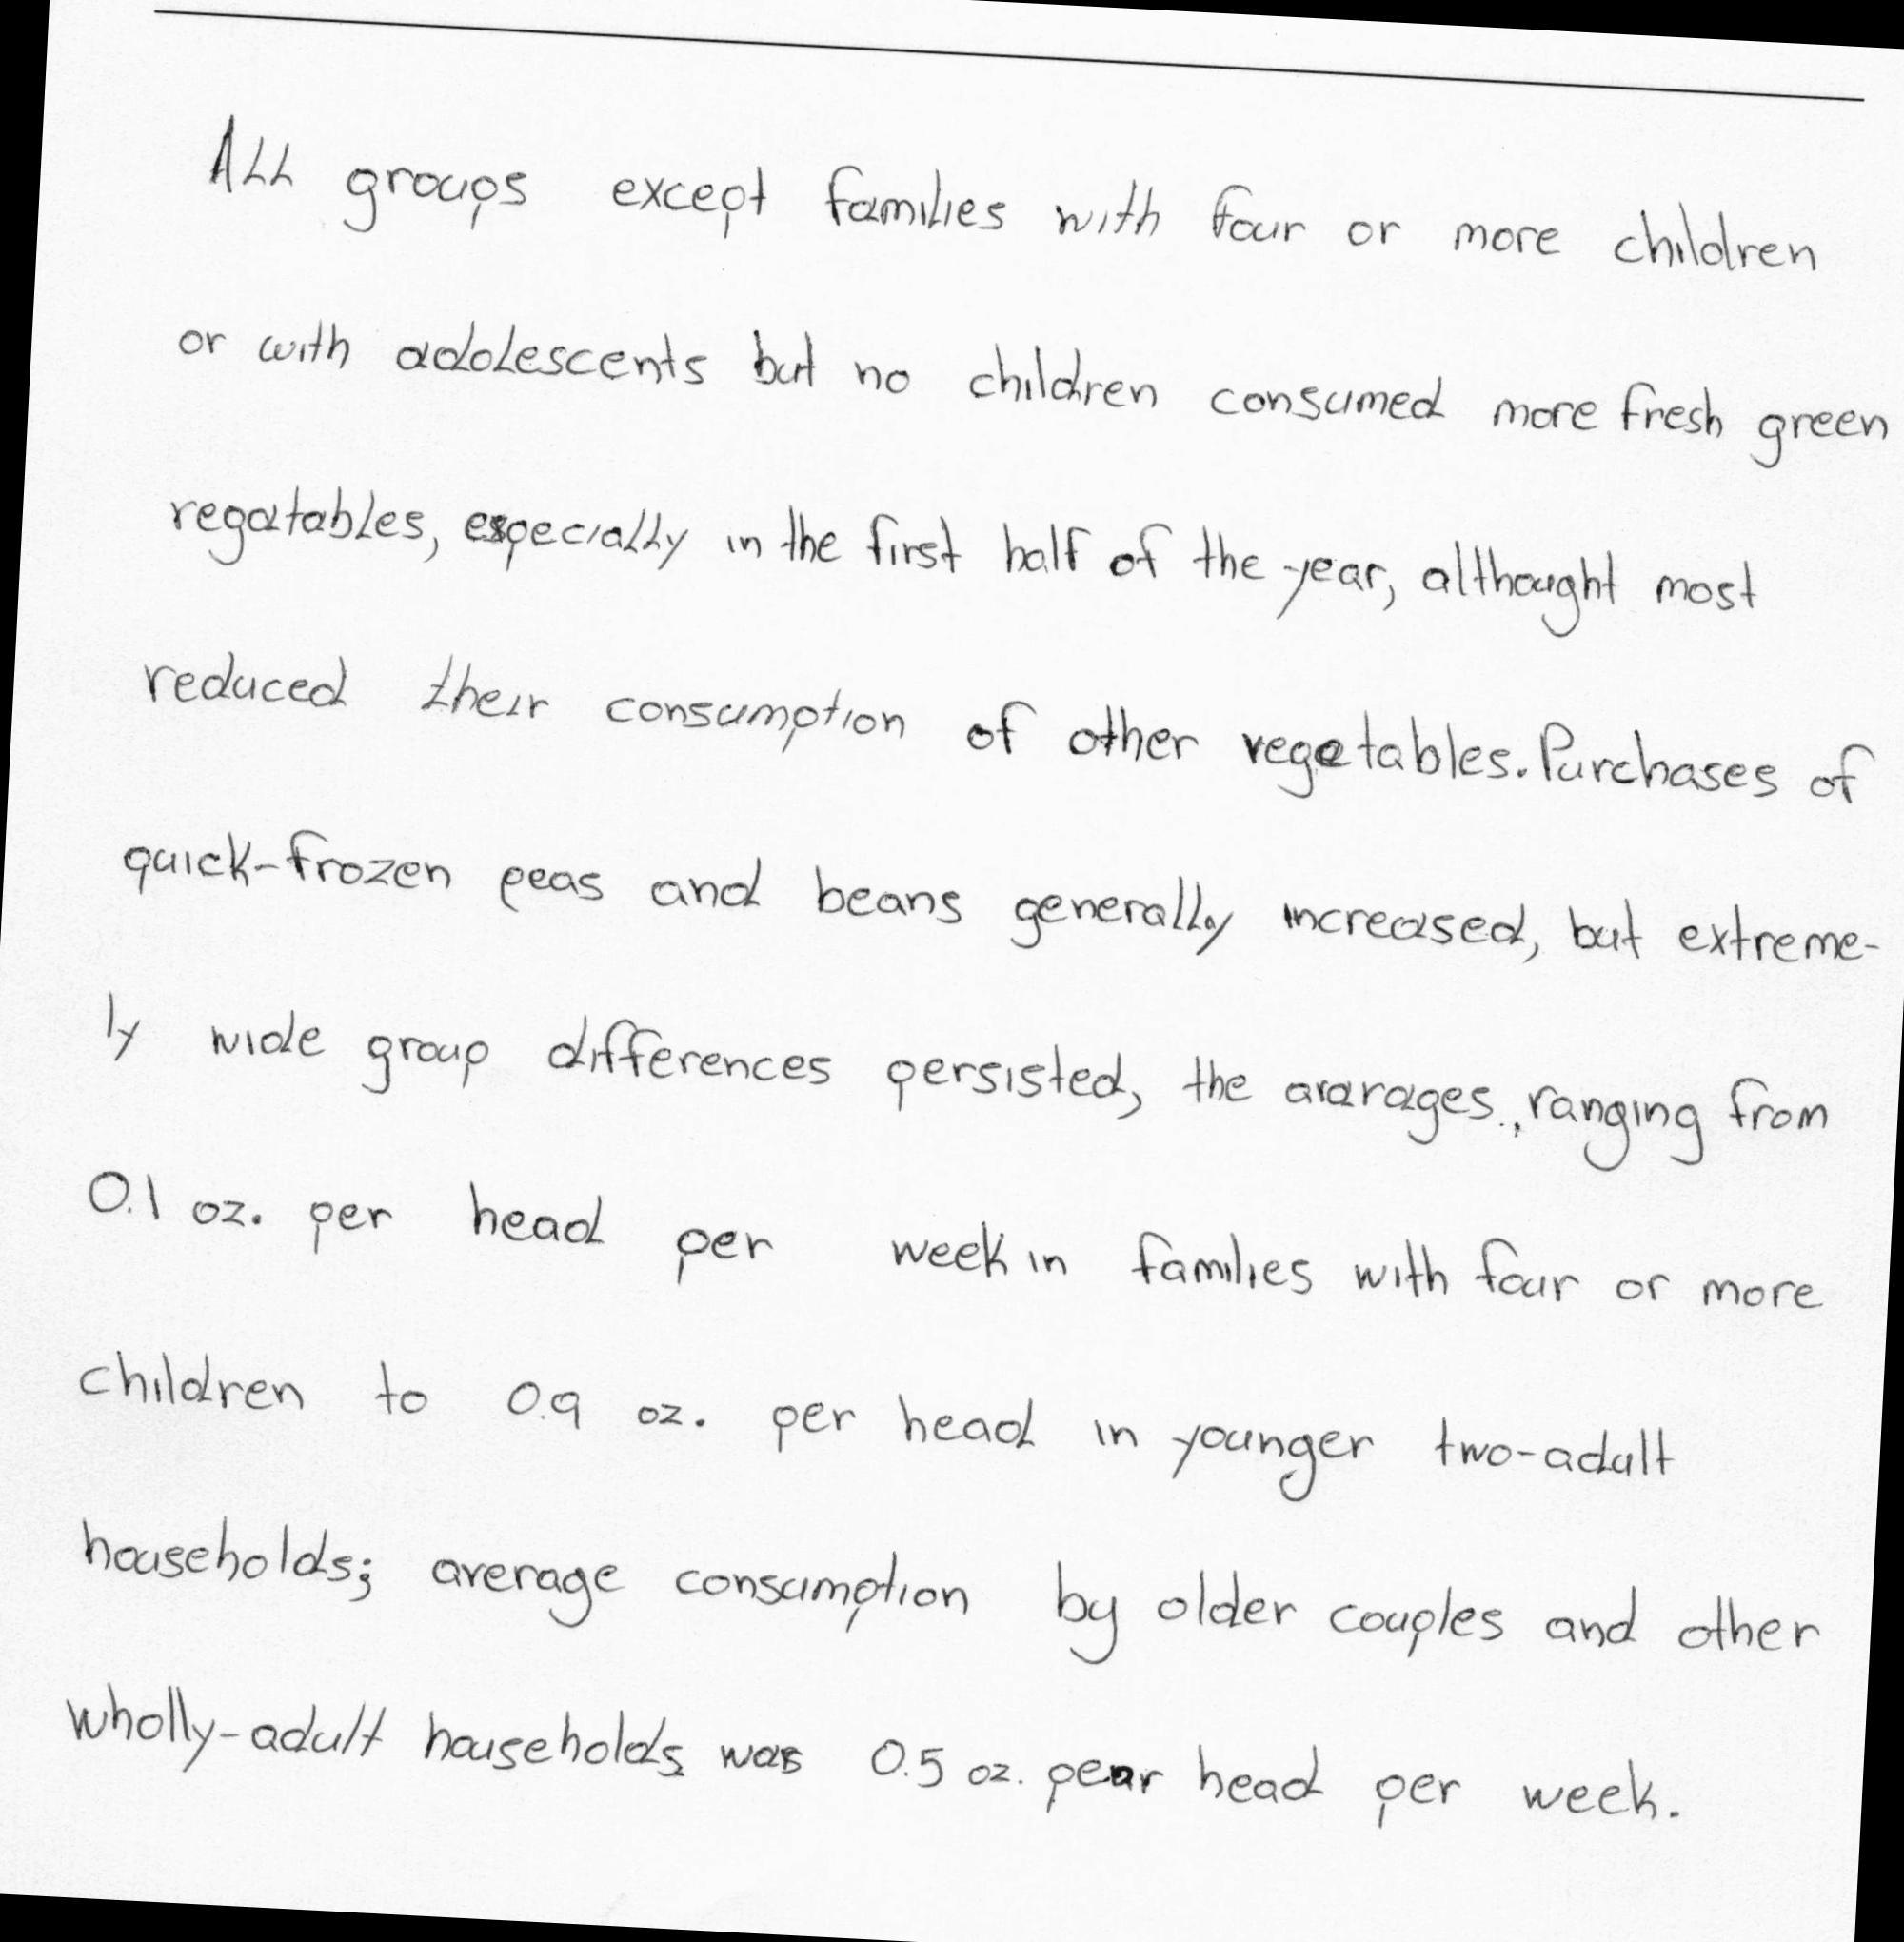 All groups except families with four or more children
or with adolescents but no children consumed more fresh green
vegatables, especially in the first half of the year, althought most
reduced their consumption of other vegetables. Purchases of
quick-frozen peas and beans generally increased, but extreme-
ly wide group differences persisted, the avarages, ranging from
0.1 oz. per head per week in families with four or more
children to 0.9 oz. per head in younger two-adult
households; average consumption by older couples and other
wholly-adult households was 0.5 oz. pear head per week.